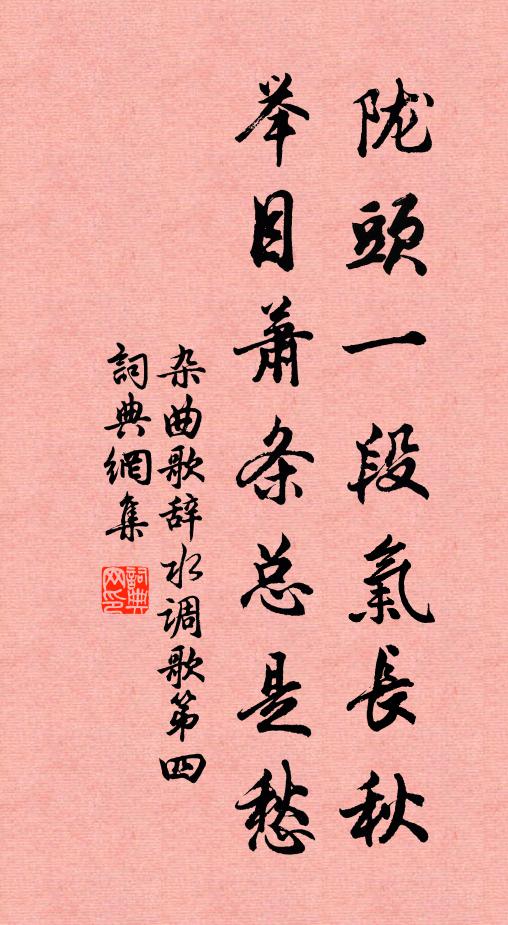 陇頭一段氣長秋
举目蕭条总是愁
杂曲歌辞水调歌第四
詞典網集
詞典网印